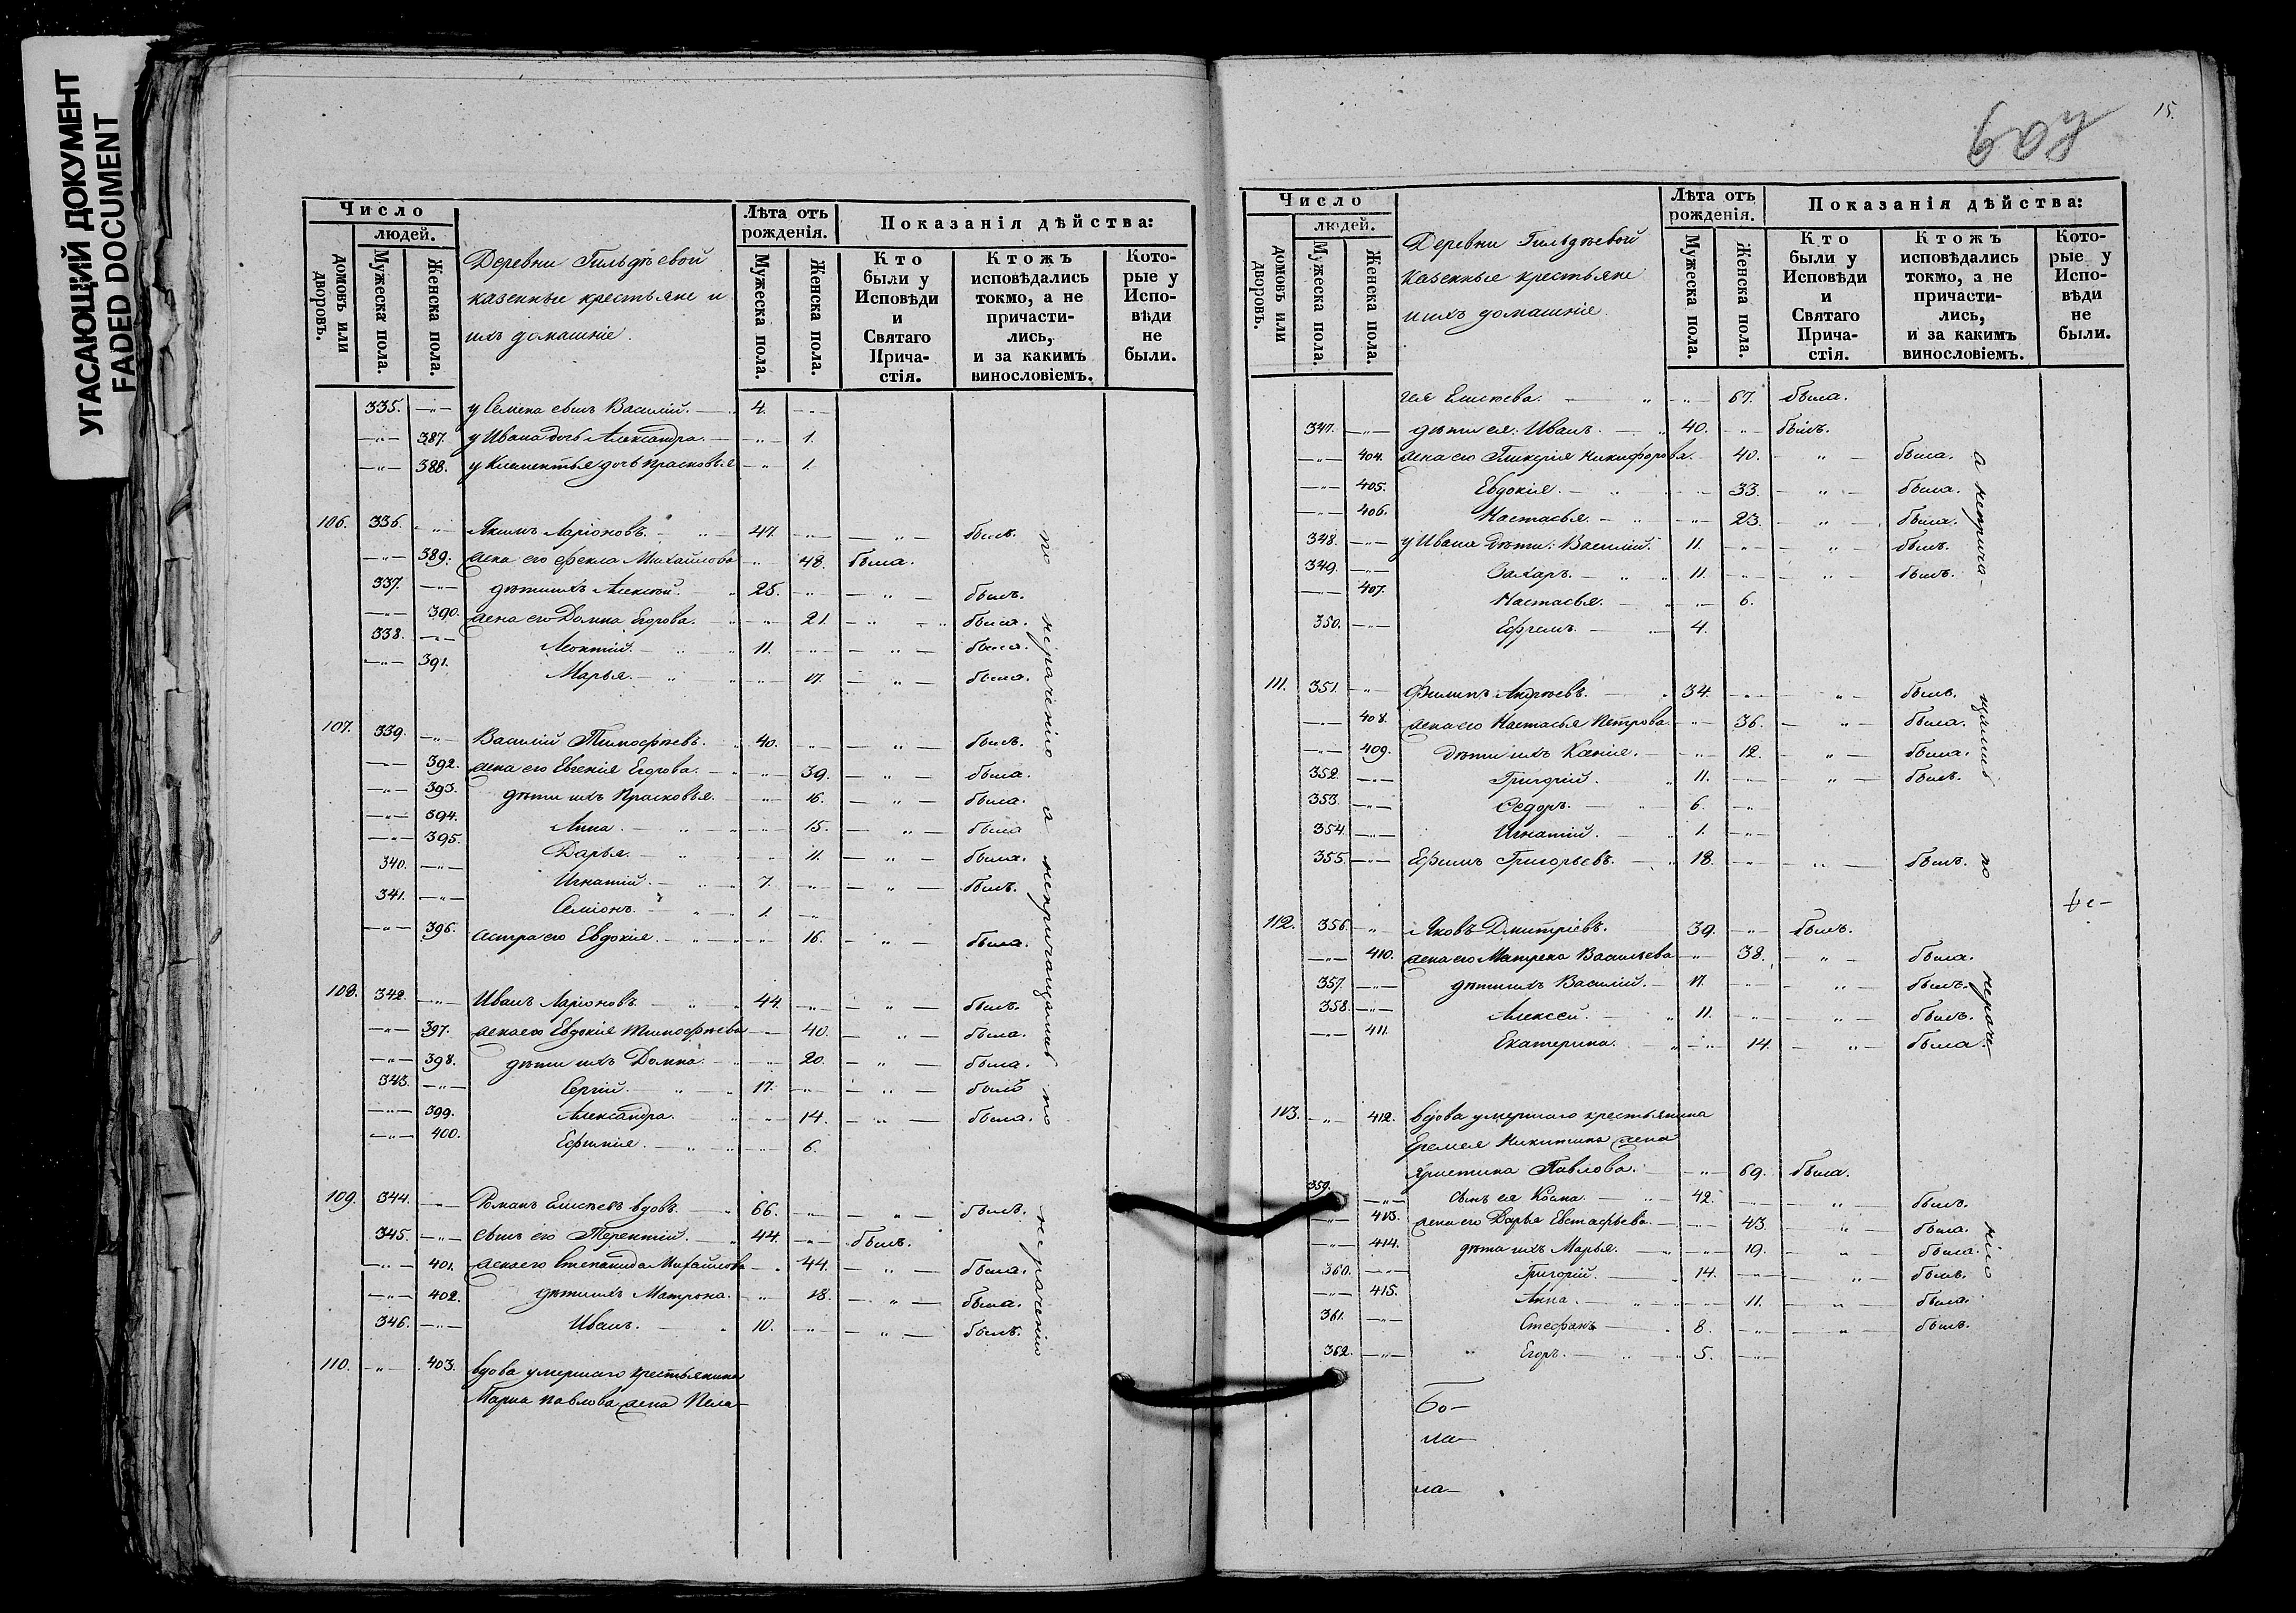 УГАСАЮЩИЙ ДОКУМЕНТ
FADED DOCUMENT
Число
людей.
домовъ или дворовъ.
Мужеска пола.
Женска пола.
Деревни Гильдѣевой
казенные крестьяне и
ихъ домашніе.
Лѣта отъ рожденія.
Мужеска пола.
Женска пола.
Показанія дѣйства:
Кто были у Исповѣди и Святаго Прича-стія.
Ктожъ исповѣдались токмо, а не причасти-лись, и за какимъ винословіемъ.
Кото-рые у Испо-вѣди не были.
335. —"— у Семена сынъ Василій. — 4. —"—
—"— 387. у Ивана дочь Александра. — —"— 1.
—"— 388. у Клементья дочь Прасковья —"— 1.
106. 336. —"— Якимъ Ларіоновъ. — 47. —"— —"— былъ.
—"— 389. жена его Фекла Михайлова —"— 48. была.
337. —"— дѣти ихъ Алексѣй. — 25. —"— —"— былъ.
—"— 390. жена его Домна Егорова. —"— 21. —"— была.
338. —"— Леонтій. — 11. —"— —"— былъ.
—"— 391. Марья. — —"— 17. —"— была.
107. 339. —"— Василій Тимофѣевъ. — 40. —"— —"— былъ.
—"— 392. жена его Евгенія Егорова. —"— 39. —"— была.
—"— 393. дѣти ихъ Прасковья. —"— 16. —"— была.
—"— 394. Анна. — —"— 15. —"— была
—"— 395. Дарья. — —"— 11. —"— была.
340. —"— Игнатій. — 7. —"— —"— былъ.
341. —"— Семіонъ. — 1. —"—
—"— 396. сестра его Евдокія. —"— 16. —"— была.
108. 342. —"— Иванъ Ларіоновъ — 44. —"— —"— былъ.
—"— 397. жена его Евдокія Тимофѣева —"— 40. —"— была.
—"— 398. дѣти ихъ Домна. —"— 20. —"— была.
343. —"— Сергій. — 17. —"— —"— былъ
—"— 399. Александра. —"— 14. —"— была.
—"— 400. Ефимія. — —"— 6.
109. 344. —"— Романъ Елисѣевъ вдовъ. — 66. —"— —"— былъ.
345. —"— сынъ его Терентій. — 44. —"— былъ.
—"— 401. жена его Степанида Михайлова —"— 44. —"— была.
—"— 402. дѣти ихъ Матрона. —"— 18. —"— была.
346. —"— Иванъ. — 10. —"— —"— былъ.
110. —"— 403. вдова умершаго крестьянина
Марка Павлова жена Пела-
по нераченію а непричащались по нераченію
15.
609
Число
людей.
домовъ или дворовъ.
Мужеска пола.
Женска пола.
Деревни Гильдѣевой
казенные крестьяне
и ихъ домашніе.
Лѣта отъ рожденія.
Мужеска пола.
Женска пола.
Показанія дѣйства:
Кто были у Исповѣди и Святаго Прича-стія.
Ктожъ исповѣдались токмо, а не причасти-лись, и за какимъ винословіемъ.
Кото-рые у Испо-вѣди не были.
гея Елисѣева. — —"— 67. была.
347. —"— дѣти ея: Иванъ. — 40. —"— былъ.
—"— 404. жена его Гликерія Никифорова. 40. —"— была.
—"— 405. Евдокія. — —"— 33. —"— была.
—"— 406. Настасья. — —"— 23. —"— была.
348. —"— у Ивана дѣти: Василій. 11. —"— —"— былъ.
349. —"— Захаръ. — 11. —"— —"— былъ.
—"— 407. Настасья. — —"— 6.
350. —"— Ефремъ. — 4.
111. 351. —"— Филипъ Андрѣевъ. — 34. —"— —"— былъ.
—"— 408. жена его Настасья Петрова. —"— 36. —"— была.
—"— 409. дѣти ихъ Ксенія. —"— 12. —"— была.
352. —"— Григорій. 11. —"— —"— былъ.
353. —"— Ѳедоръ. — 6. —"—
354. —"— Игнатій. — 1. —"—
355. —"— Ефимъ Григорьевъ. — 18. —"— —"— былъ.
112. 356. —"— Яковъ Дмитріевъ. — 39. —"— былъ.
—"— 410. жена его Матрена Васильева —"— 38. —"— была.
357. —"— дѣти ихъ Василій. — 17. —"— —"— былъ.
358. —"— Алексей. — 11. —"— —"— былъ.
—"— 411. Екатерина. —"— 14. —"— была.
113. —"— 412. вдова умершаго крестьянина
Еремея Никитина жена
Христина Павлова. —"— 69. была.
359. —"— сынъ ея Косма. — 42. —"— —"— былъ.
—"— 413. жена его Дарья Евстафьева. —"— 43. —"— была.
—"— 414. дѣти ихъ Марья. —"— 19. —"— была.
360. —"— Григорій. — 14. —"— —"— былъ.
—"— 415. Анна. — —"— 11. —"— была.
361. —"— Стефанъ — 8. —"— —"— былъ.
362. —"— Егоръ. — 5. —"—
а неприча-
щались по нераче-
нію
Бо-
ла-